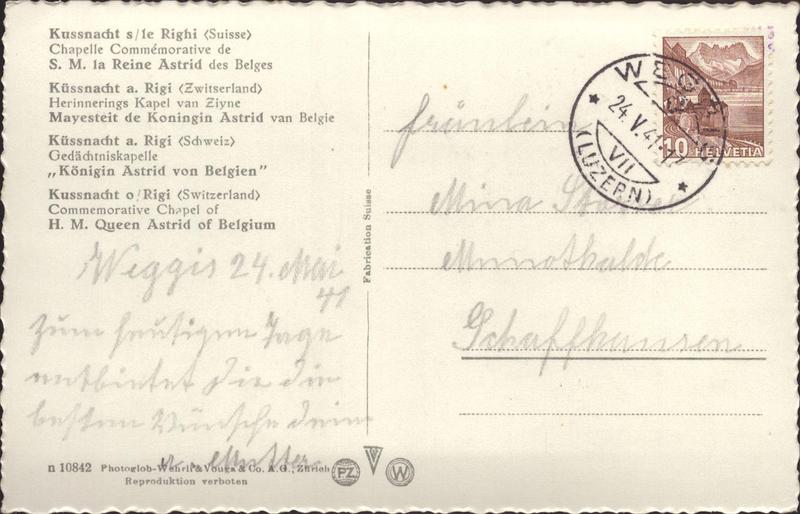 Kussnacht s/le Righi (Suisse)
Chapelle Commémorative de
S. M. la Reine Astrid des Belges
Küssnacht a. Rigi (Zwitserland)
Herinnerings Kapel van Ziyne
Mayesteit de Koningin Astrid van Belgie
Küssnacht a. Rigi (Schweiz)
Gedächtniskapelle
„Königin Astrid von Belgien"
Kussnacht o/Rigi (Switzerland)
Commemorative Chapel of
H. M. Queen Astrid of Belgium
Weggis 24. Mai
41
Zum heutigen Tage
entbietet Dir die
besten Wünsche deine
Mutter
n 10842 Photoglob-Wehrli & Vouga & Co. A.G., Zürich
Reproduktion verboten
PZ
W
Fabrication Suisse
WEGGIS
24.V.41
VII
(LUZERN)
10 HELVETIA
Fräulein
Mina
Munothalde
Schaffhausen